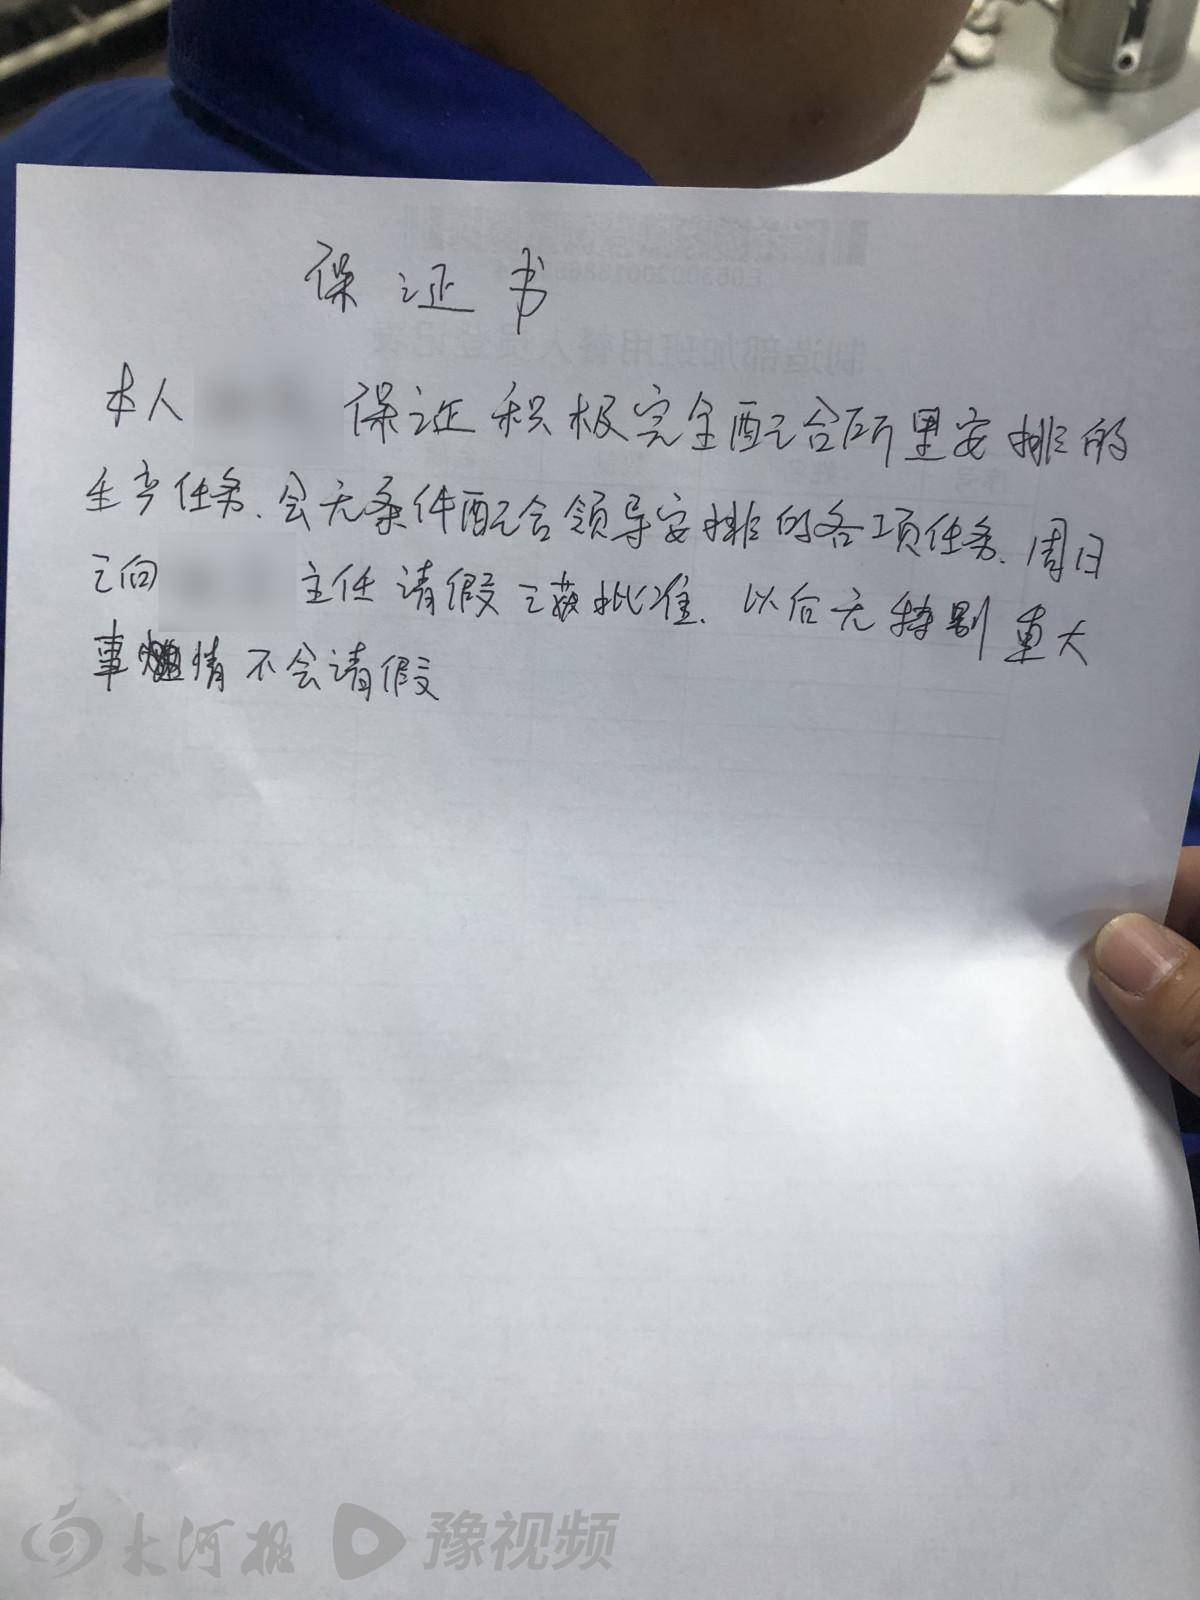 保证书
本人 保证积极完全配合所里安排的
生产任务、会无条件配合领导安排的各项任务、周日
已向 主任请假已获批准、以后无特别重大
事 情不会请假
制造部加班用餐人员登记表
大河报 豫视频